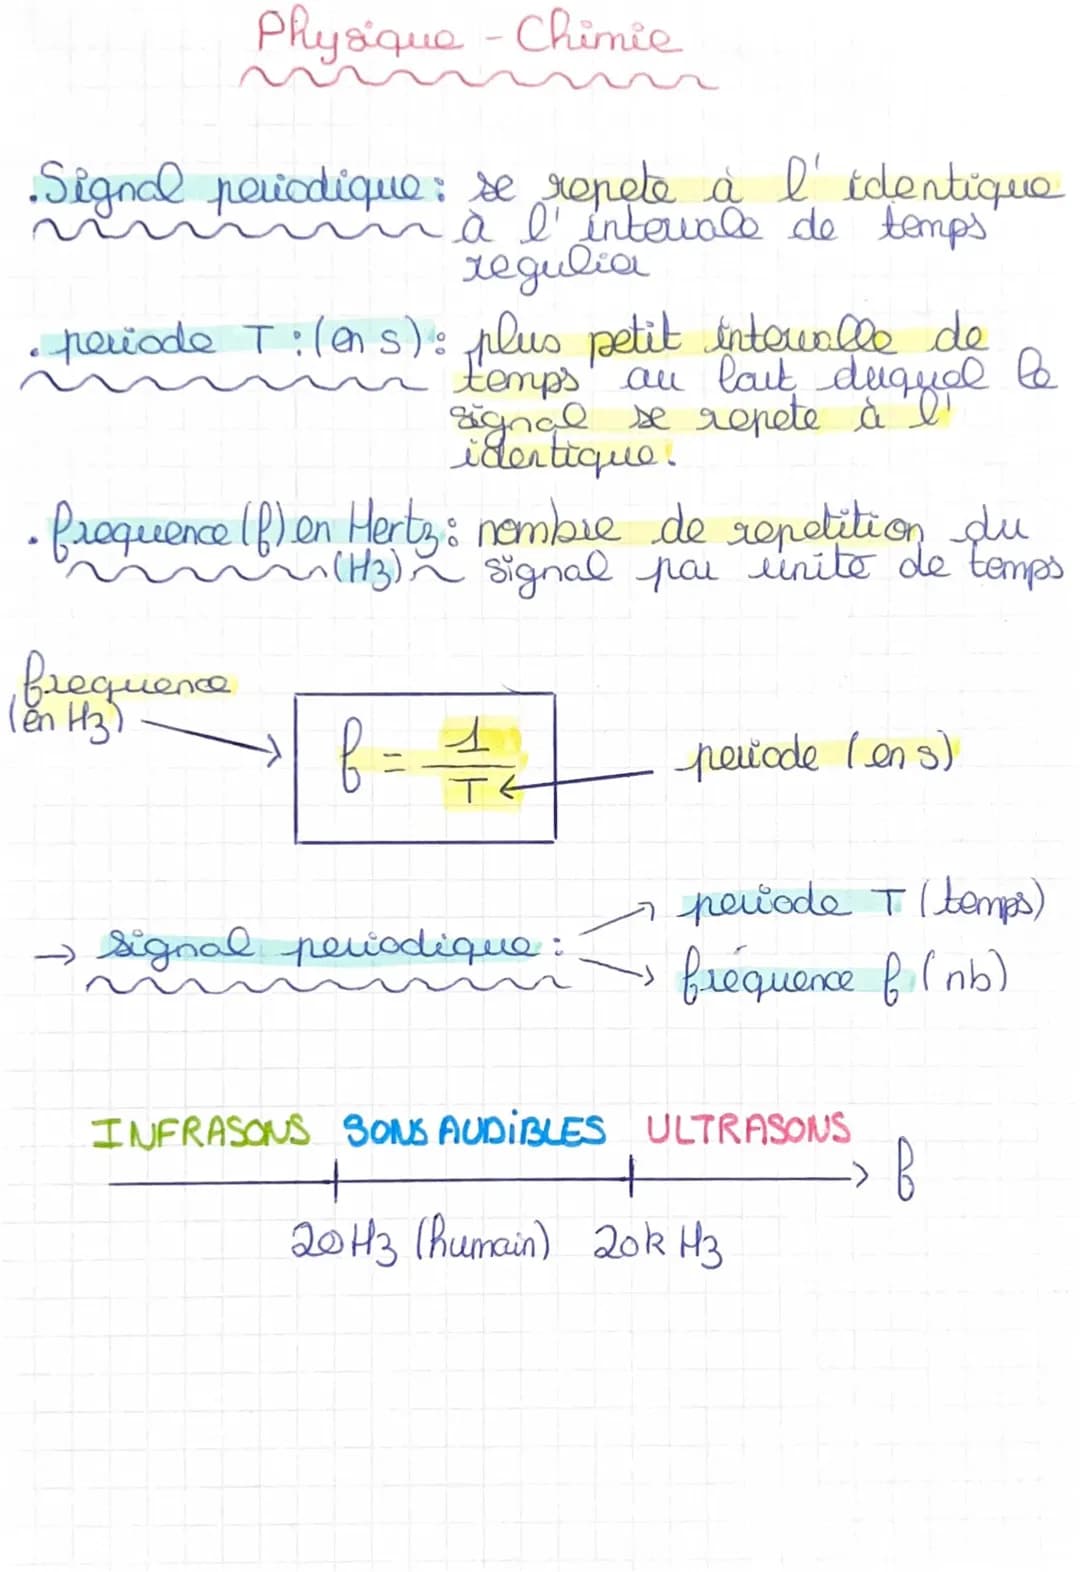 Physique - Chimie
. Signal periodique : se repete à l' identique
à l' intervale de temps
regulier
. periode T : (en s) : plus petit intervalle de
temps au bout duquel le
signal se repete à l'
identique.
. frequence (f) en Hertz : nombre de repetition du
(Hz) signal par unite de temps
frequence
(en Hz)
f = 1
T
periode (en s)
→ signal periodique :
periode T (temps)
fréquence f (nb)
INFRASONS SONS AUDIBLES ULTRASONS
f
20 Hz (humain) 20k Hz